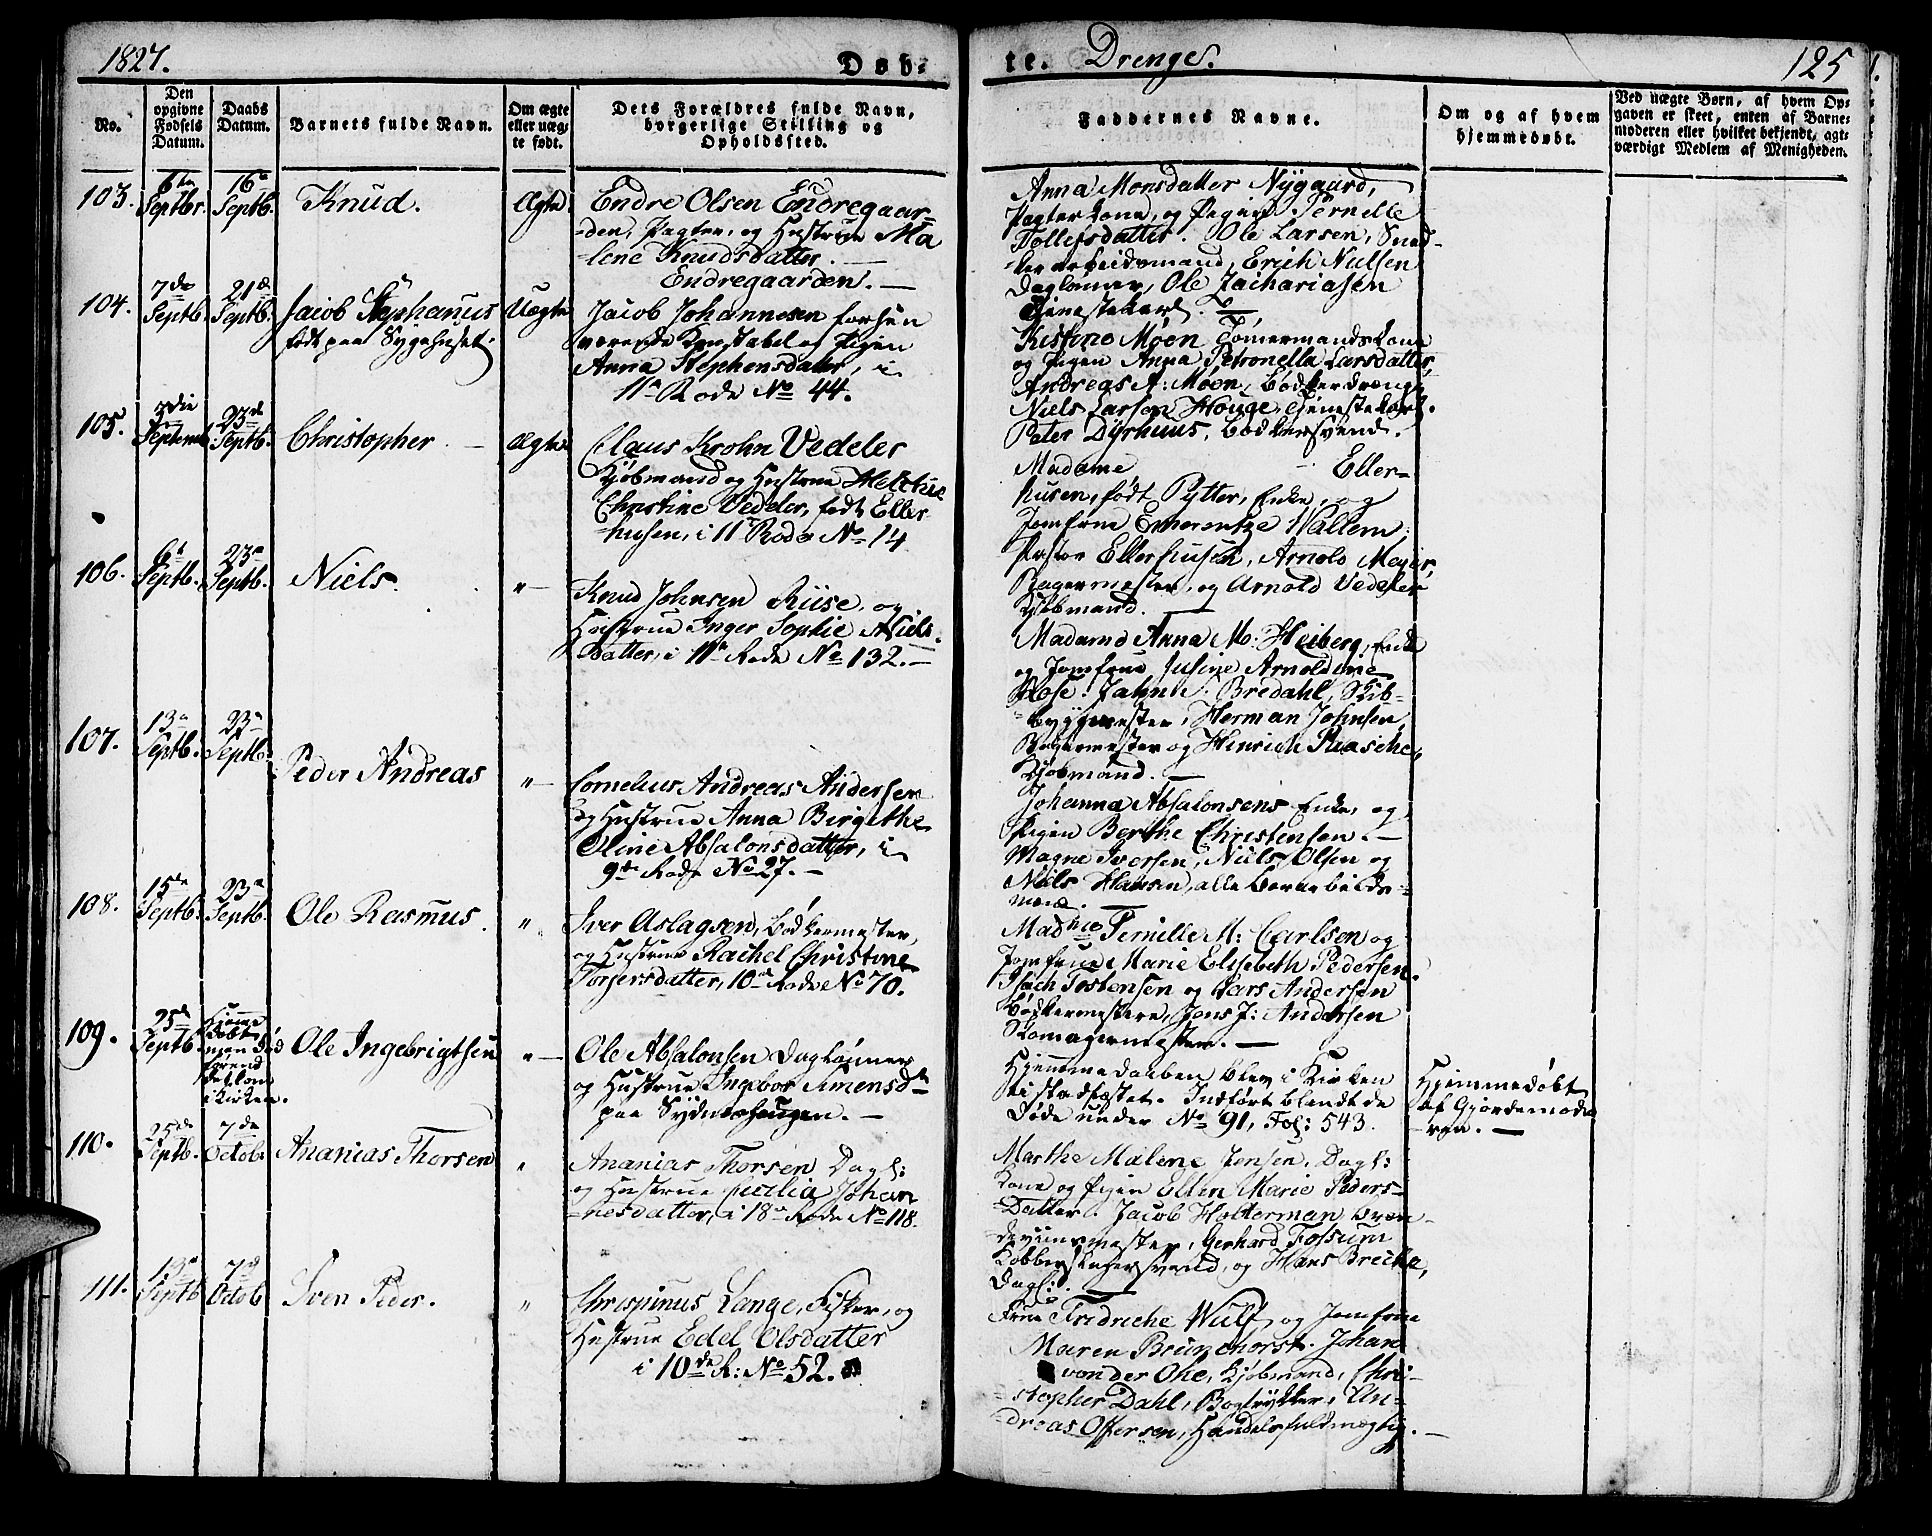 1827.
Døb-
te.
Drenge.
125
No.
Den opgivne Fødsels Datum.
Daabs Datum.
Barnets fulde Navn.
Om ægte eller uægte født.
Dets Forældres fulde Navn, borgerlige Stilling og Opholdssted.
Faddernes Navne.
Om og af hvem hjemmedøbt.
Ved uægte Børn, af hvem Opgaven er skeet, enten af Barnemoderen eller hvilket bekjendt, agtværdigt Medlem af Menigheden.
103.
6te Septbr.
16de Septb.
Knud.
Ægte
Endre Olsen Endregaar-
den, Pagter, og Hustrue Ma
lene Knudsdatter. —
Endregaarden. —
Anna Monsdatter Nygaard,
Pagterkone, og Pigen Pernelle
Tollefsdatter. Ole Larsen, Sned-
ker arbeidsmand, Erich Nielsen
Dagløner, Ole Zachariasen
Tjenestekarl. —
104.
7de Septb.
21de Septb.
Jacob Stephanus
født paa Sygehuset.
Uægte
Jacob Johannesen forhen
værende Constabel og Pigen
Anna Stephensdatter, i
11te Rode No 44.
Kistine Møen Tømermandskone
og Pigen Anna Petronella Larsdatter,
Andreas A: Møen, Bødkerdreng,
Niels Larsen Houge, Tjenestekarl.
Peter Dyrhuus, Bødkersvend.
105.
23de Septb.
Christopher
Ægte
Claus Krohn Vedeler
Kjøbmand og Hustrue
Christine Vedeler, født Eller-
husen, i 11te Rode No 14
Madame Eller-
husen, født Pytter, Enke, og
Jomfrue Emerentze Wallem,
Pastor Ellerhusen, Arnold Meyer,
Bagermester, og Arnold Vedeler
Kjøbmand. —
106.
6te Septb.
23de Septb.
Niels
"—
Knud Johnsen Riise, og
Hustrue Inger Sophie Niels-
Datter, i 11te Rode No 132. —
Madame Anna M: Heiberg, Enke
og Jomfrue Juline Arnoldine
Rose. Jahnn Bredahl, Skib-
bygmester, Herman Johnsen,
Bagermester og Hinrich Raasche,
Kjøbmand. —
107.
13de Septb.
23de Septb.
Peder Andreas
"—
Cornelius Andreas Andersen
og Hustrue Anna Birgithe
Oline Absalonsdatter, i
9de Rode No 27. —
Johanna Absalonsens Enke, og
Pigen Berthe Christensen. —
Magne Iversen, Niels Olsen og
Niels Hansen, alle
108.
15de Septb.
23de Septb.
Ole Rasmus.
"
Iver Aslagsen, Bødkermester,
og Hustrue Rachel Christine
Torgersdatter, 10de Rode No 70.
Madme Pernille M: Carlsen og
Jomfrue Marie Elisebeth Pedersen.
Isach Tostensen og Lars Andersen
Bødkermestere, Jens J: Andersen
Skomagermester. —
109.
25de Septb.
Hjemme
døbt
men død
førend
det kom
i Kirken.
Ole Ingebrigtsen
"—
Ole Absalonsen Dagløner
og Hustrue Ingebor Simensdr
paa Sydneshaugen. —
Hjemmedaaben blev i Kirken
ei stadfæstet. Indført blandt de
Døde under No 91, Fol: 543.
Hjemmedøbt
af Gjordemode
ren. —
110.
25de Septb.
7de Octob.
Ananias Thorsen
"
Ananias Thorsen Dagl:
og Hustrue Cecilia Johan
nesdatter, i 18de Rode No 118.
Marthe Malene Jensen, Dagl:
Kone og Pigen Ellen Marie Peders-
Datter. Jacob Holterman Bræn-
deviinsmester, Gerhard Fossum
Kobberslagersvend, og Hans Brecke,
Dagl: —
111.
13de Septb
7de Octob
Sven Peder.
"
Chrispinus Lange, Fisker, og
Hustrue Edel Olsdatter
i 10de R: No 52.
Frue Fredriche Wulf, og Jomfrue
Maren Brunchorst. Johan
von der Ohe, Kjøbmand, Chri-
stopher Dahl, Bogtrykker, An-
dreas Offersen, Handelsfuldmægtig. —